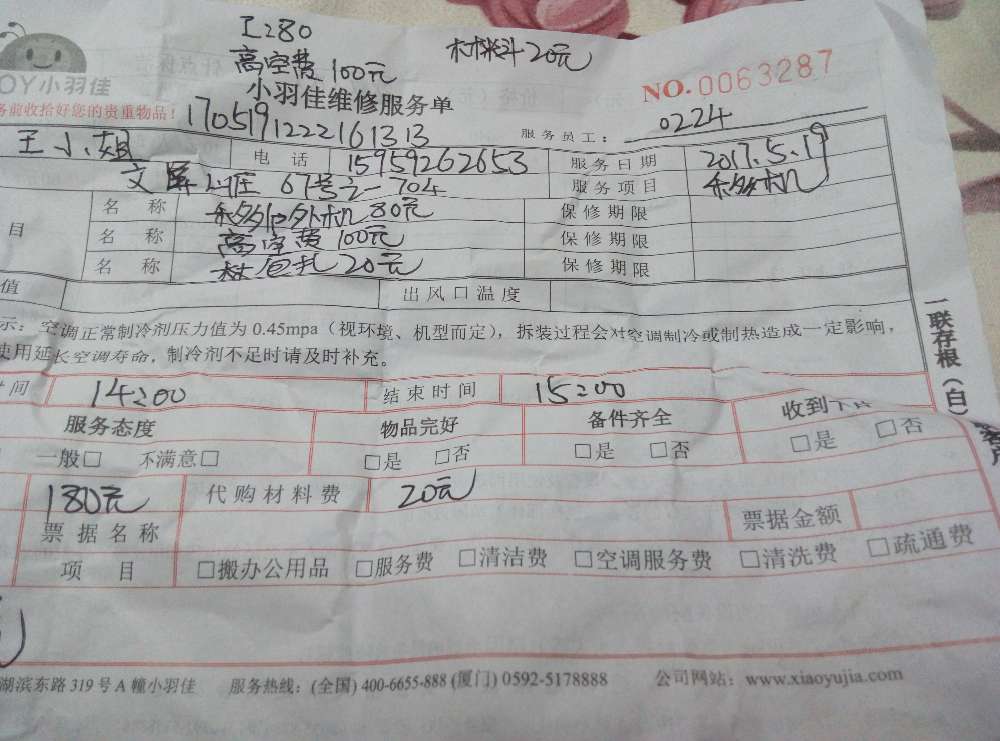 工280
高空费100元 材料20元
OY小羽佳
NO.0063287
务前收拾好您的贵重物品!
小羽佳维修服务单
1705191222161313 服务员工: 0224
王小姐 电话 15959262653 服务日期 2017.5.19
文屏山庄 67号之一704 服务项目 移机
目 名称 移外机80元 保修期限
名称 高空费100元 保修期限
名称 包扎20元 保修期限
值 出风口温度
示: 空调正常制冷剂压力值为 0.45mpa (视环境、机型而定), 拆装过程会对空调制冷或制热造成一定影响,
使用延长空调寿命, 制冷剂不足时请及时补充。
时间 14:00 结束时间 15:00
服务态度 物品完好 备件齐全 收到
一般□ 不满意□ □是 □否 □是 □否 □是 □否
180元 代购材料费 20元
票据名称 票据金额
项目 □搬办公用品 □服务费 □清洁费 □空调服务费 □清洗费 □疏通费
一联存根(白)
湖滨东路 319 号 A 幢小羽佳 服务热线: (全国) 400-6655-888 (厦门) 0592-5178888 公司网站: www.xiaoyujia.com